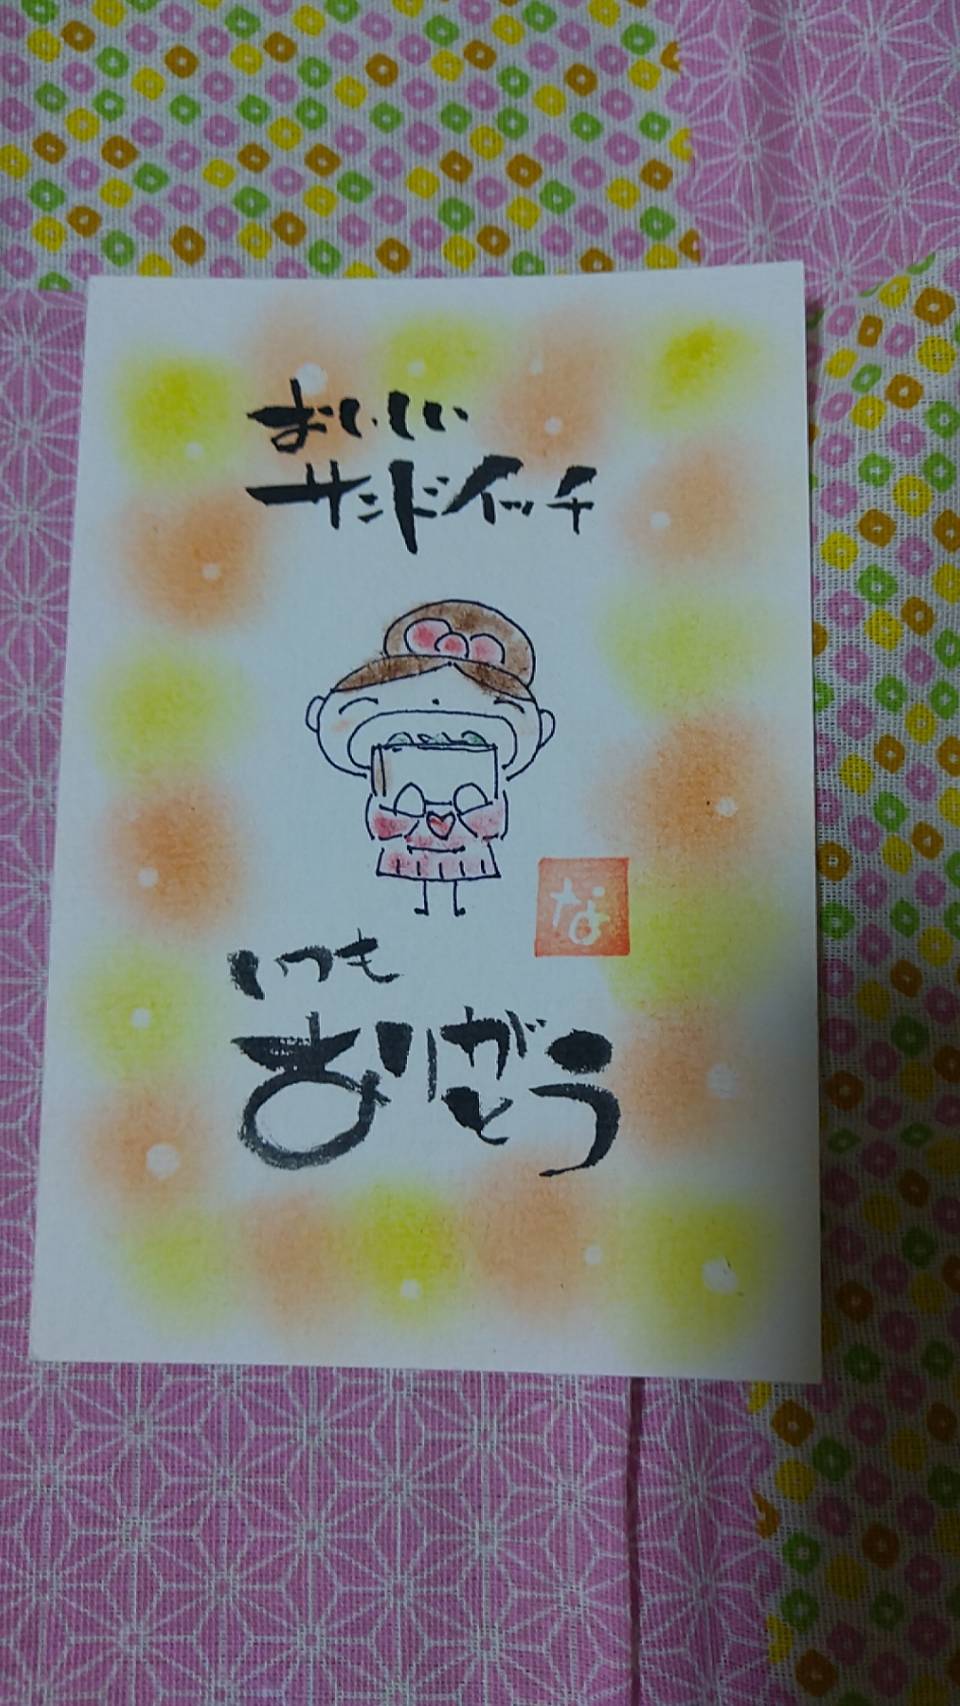 おいしい
サンドイッチ
な
いつも
ありがとう